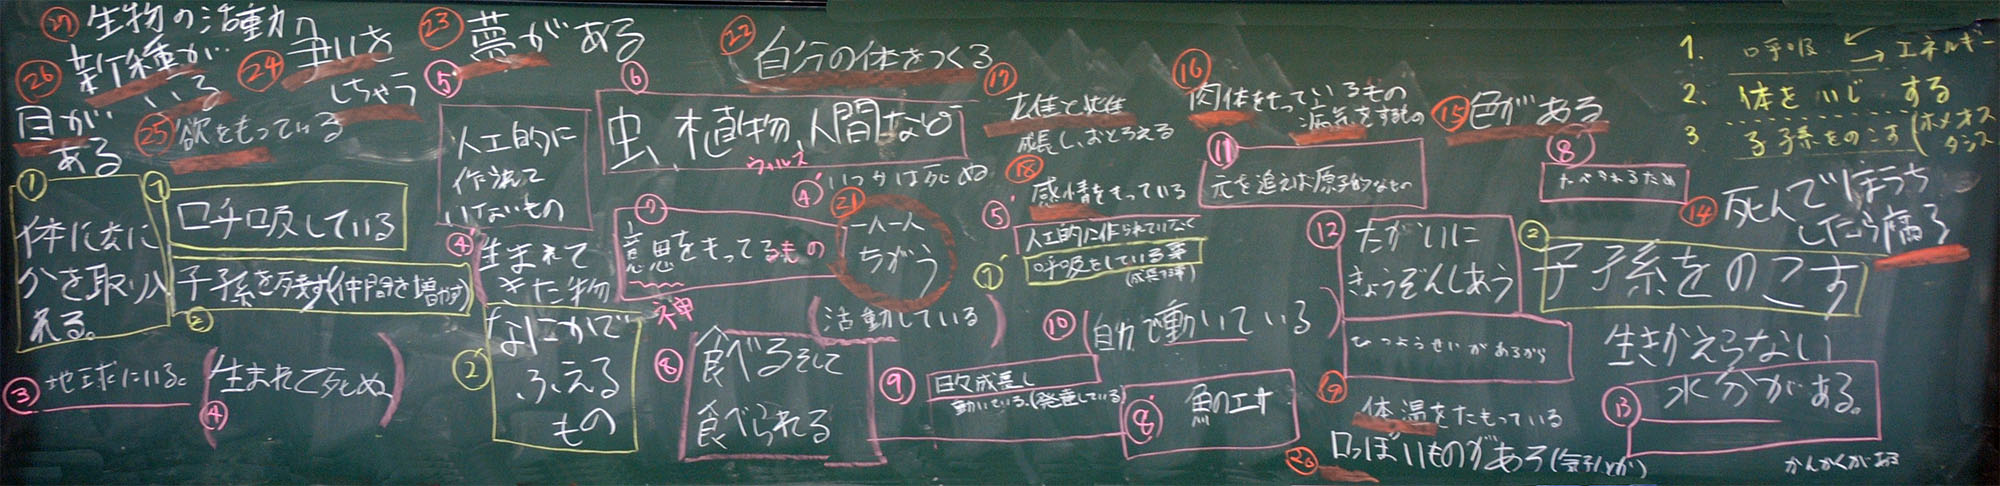 ㉗ 生物の活動力
新種が
いる
㉖ 目が
ある
㉔ 争いを
しちゃう
㉕ 欲をもっている
㉓ 夢がある
㉒ 自分の体をつくる
⑤ 人工的に
作られて
いないもの
⑥ 虫、植物、人間など
ウィルス
④' いつかは死ぬ
⑰ 雄と雌
成長し、おとろえる
⑯ 肉体をもっているもの
病気をするもの
⑮ 色がある
1. 呼吸 エネルギー
2. 体をいじする
3 子孫をのこす(ホメオス
タシス
① 体になに
かを取り入
れる。
① 呼吸している
子孫を残す(仲間を増やす)
②
④' 生まれて
きた物
⑦ 意思をもってるもの
神
㉑ 一人一人
ちがう
⑱ 感情をもっている
⑤' 人工的に作られていなく
①' 呼吸をしている事
⑪ 元を追えば原子的なもの
⑧' たべられるため
⑭ 死んでほうち
したら腐る
⑫ たがいに
きょうぞんしあう
② 子孫をのこす
③ 地球にいる。
(生まれて死ぬ)
④
②' なにかで
ふえる
もの
(活動している)
⑧ 食べるそして
食べられる
⑨ 日々成長し
動いている。(発達している)
⑩ (自力で動いている)
⑧' 魚のエサ
ひつようせいがあるから
生きかえらない
⑬ 水分がある。
⑲ 体温をたもっている
⑳ 口っぽいものがある(気孔とか)
かんかくがある